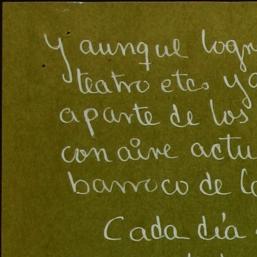 y aunque logr
teatro etc. ya
aparte de los
con aire actu
barroco de la
Cada día